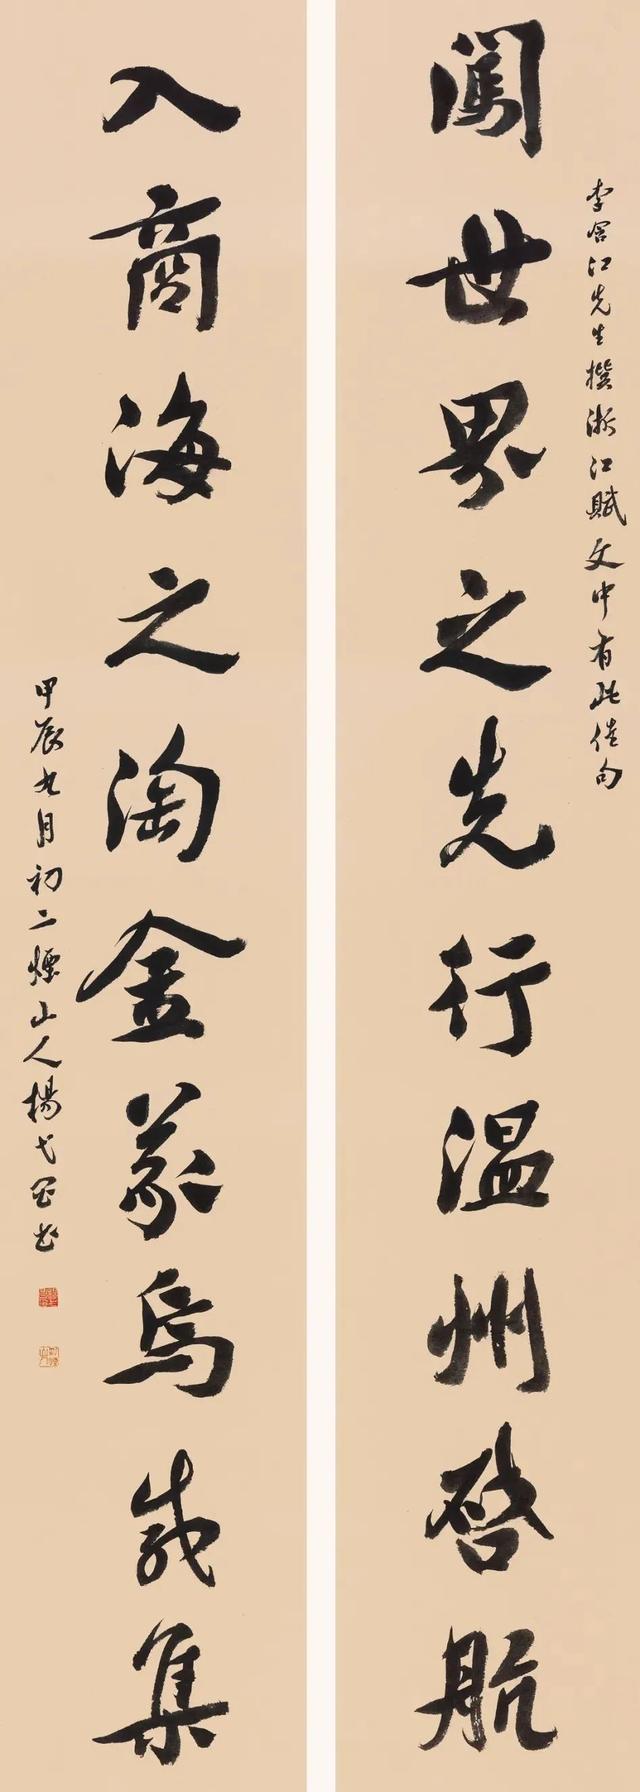 李江先生撰浙江賦文中有此佳句
闖世界之先行温州啓航
入商海之淘金義烏成集
甲辰九月初二煙山人楊弋書